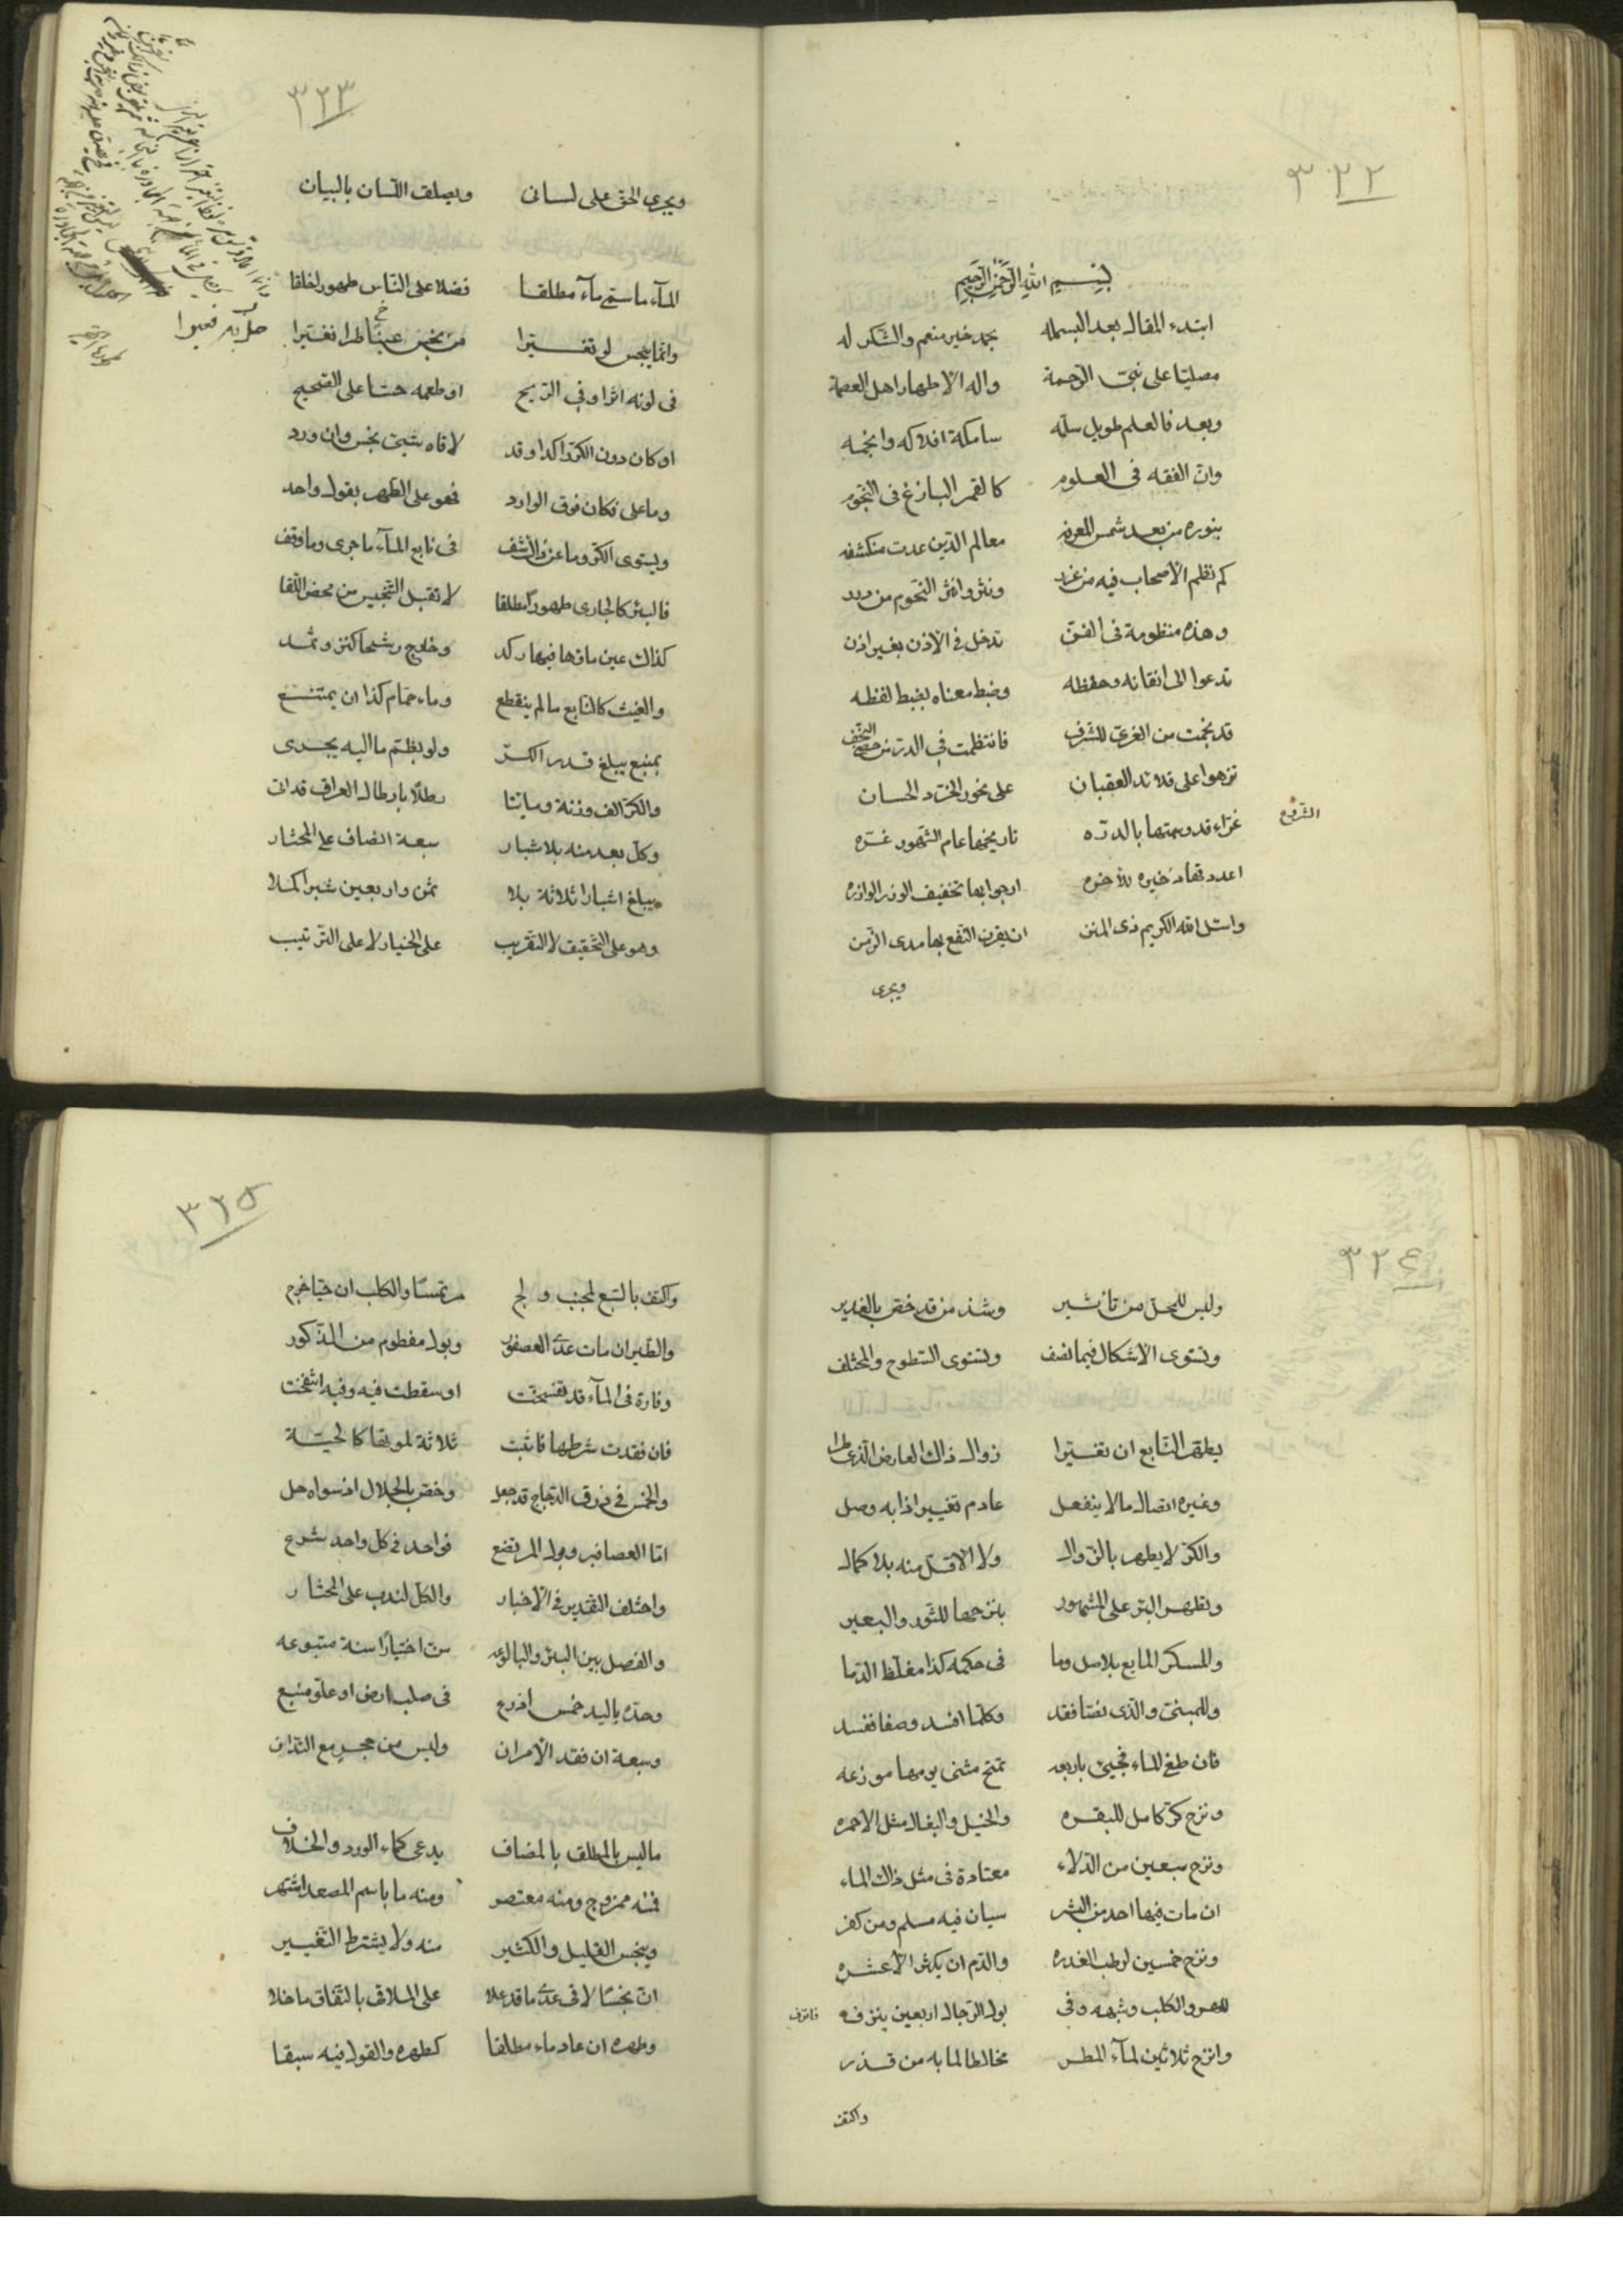 ٣٢٢
بسم الله الرحمن الرحيم
ابتدء المقال بعد البسمله بحمد خير منعم والشكر له
مصليا على نبي الرحمة واله الاطهار اهل العصمة
وبعد فالعلم طويل سلمه سامكة افلاكه وانجمه
وان الفقه فى العلوم كالقمر البازغ فى النجوم
بنوره من بعد شمس المعرفه معالم الدين عدت منكشفه
كم نظم الاصحاب فيه من غرر ونثروا نثر النجوم من درر
وهذه منظومة فى الفن تدخل فى الاذن بغير اذن
تدعوا الى اتقانه وحفظه وضبط معناه بضبط لفظه
قد نجمت من الغرى للشرف فانتظمت فى الدر من حصى النجف
تزهوا على قلائد العقيان على نحور الخرد الحسان
غراء قد وسمتها بالدره تاريخها عام الشهور غره
اعددتها ذخيره للاخره ارجو ابها تخفيف الوزر الوازره
واسئل الله الكريم ذى المنن ان يقرن النفع بها مدى الزمن
ويجرى
٣٢٣
ويجرى الحق على لسانى ويصلق اللسان بالبيان
الماء ما سمى ماء مطلقا فضلا على الناس طهور لخلقا
وانما ينجس لو تغيرا من نجس عينا طرا تغيرا
فى لونه اثرا وفى الريح او طعمه حسا على الصحيح
او كان دون الكر راكدا وقد لاقاه شيئ نجس وان ورد
وما على فكان فوق الوارد فهو على الطهر بقول واحد
ويستوى الكر وما عنه الشف فى نابع الماء ما جرى وما وقف
فالبئر كالجارى طهورا مطلقا لا تقبل التنجيس من محض اللقا
كذاك عين ماؤها فيها ركد وخارج رشحا كنز وثمد
والغيث كالنابع ما لم ينقطع وماء حمام كذا ان يمتنع
بمنبع يبلغ قدر الكر ولو بضم ما اليه يجرى
والكر الف وزنة ومايتا رطلا بارطال العراق قد اتى
وكل بعد منه بلاشبار سبعة انصاف على المختار
يبلغ اشبارا ثلاثة بلا ثمن واربعين شبرا كملا
وهو على التحقيق لا التقريب على الخيار لا على الترتيب
٣٢٤
وليس للمحل من تاثير وشذ من قد خص بالغدير
وتستوى الاشكال فيما نصف وتستوى السطوح والمختلف
يطهر النابع ان تغيرا زوال ذاك العارض الذى طرا
وغيره اتصال ما لا ينفعل عادم تغيير اذا به وصل
والكر لا يطهر بالزوال ولا الاقل منه بلا كمال
وتطهر البئر على المشهور بنزحها للثور والبعير
والمسكر المايع بلاصل وما فى حكمه كذا مغلظ الدما
وللمنى والذى نصا فقد وكلما افسد وصفا ففسد
فان طغى الماء فجيئ باربعه تمتح مثنى يومها موزعه
ونزح كر كامل للبقره والخيل والبغال مثل الاحمره
ونزح سبعين من الدلاء معتادة فى مثل ذاك الماء
ان مات فيها احد من البشر سيان فيه مسلم ومن كفر
ونزح خمسين لرطب العذره والدم ان يكثر الا عشره
للهر والكلب وشبهه وفى بول الرجال اربعين ينزف
وانزح ثلاثين لماء المطر مخالطا لما به من قذر
واكتف
٣٢٥
واكتف بالسبع لجنب ولج مرتمسا والكلب ان حيا خرج
والطير ان مات عدى العصفور وبول مفطوم من الذكور
وفارة فى الماء قد تفسخت او سقطت فيه وفيه انتفخت
فان فقدت شرطها فاثبت ثلاثة لموتها كالحية
والخمس فى ذرق الدجاج قد جعل وخص بالجلال اذ سواه حل
اما العصافير وبول المرتضع فواحد فى كل واحد شرع
واختلف التقدير فى الاخبار والكل لندب على المختار
والفصل بين البئر والبالوعه سن اختيارا سنة متبوعه
وحده باليد خمس اذرع فى صلب ارض او علو منبع
وسبعة ان فقد الامران وليس من حجر مع التدانى
ما ليس بالمطلق بالمضاف يدعى كماء الورد والخلاف
فمنه ممزوج ومنه معتصر ومنه ما باسم المصعد اشتهر
وينجس القليل والكثير منه ولا يشترط التغيير
ان نجسا لاقى عدى ما قد علا على الملاقى باتفاق ما خلا
وطهره ان عاد ماء مطلقا كطهره والقول فيه سبقا